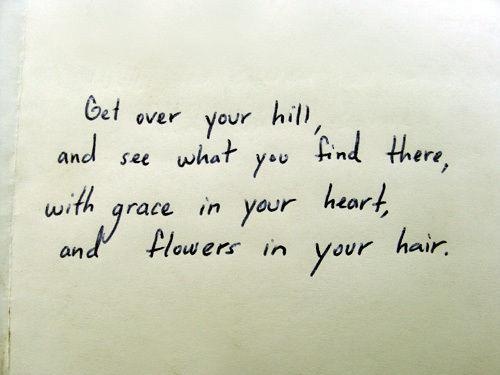 Get over your hill,
and see what you find there,
with grace in your heart,
and flowers in your hair.